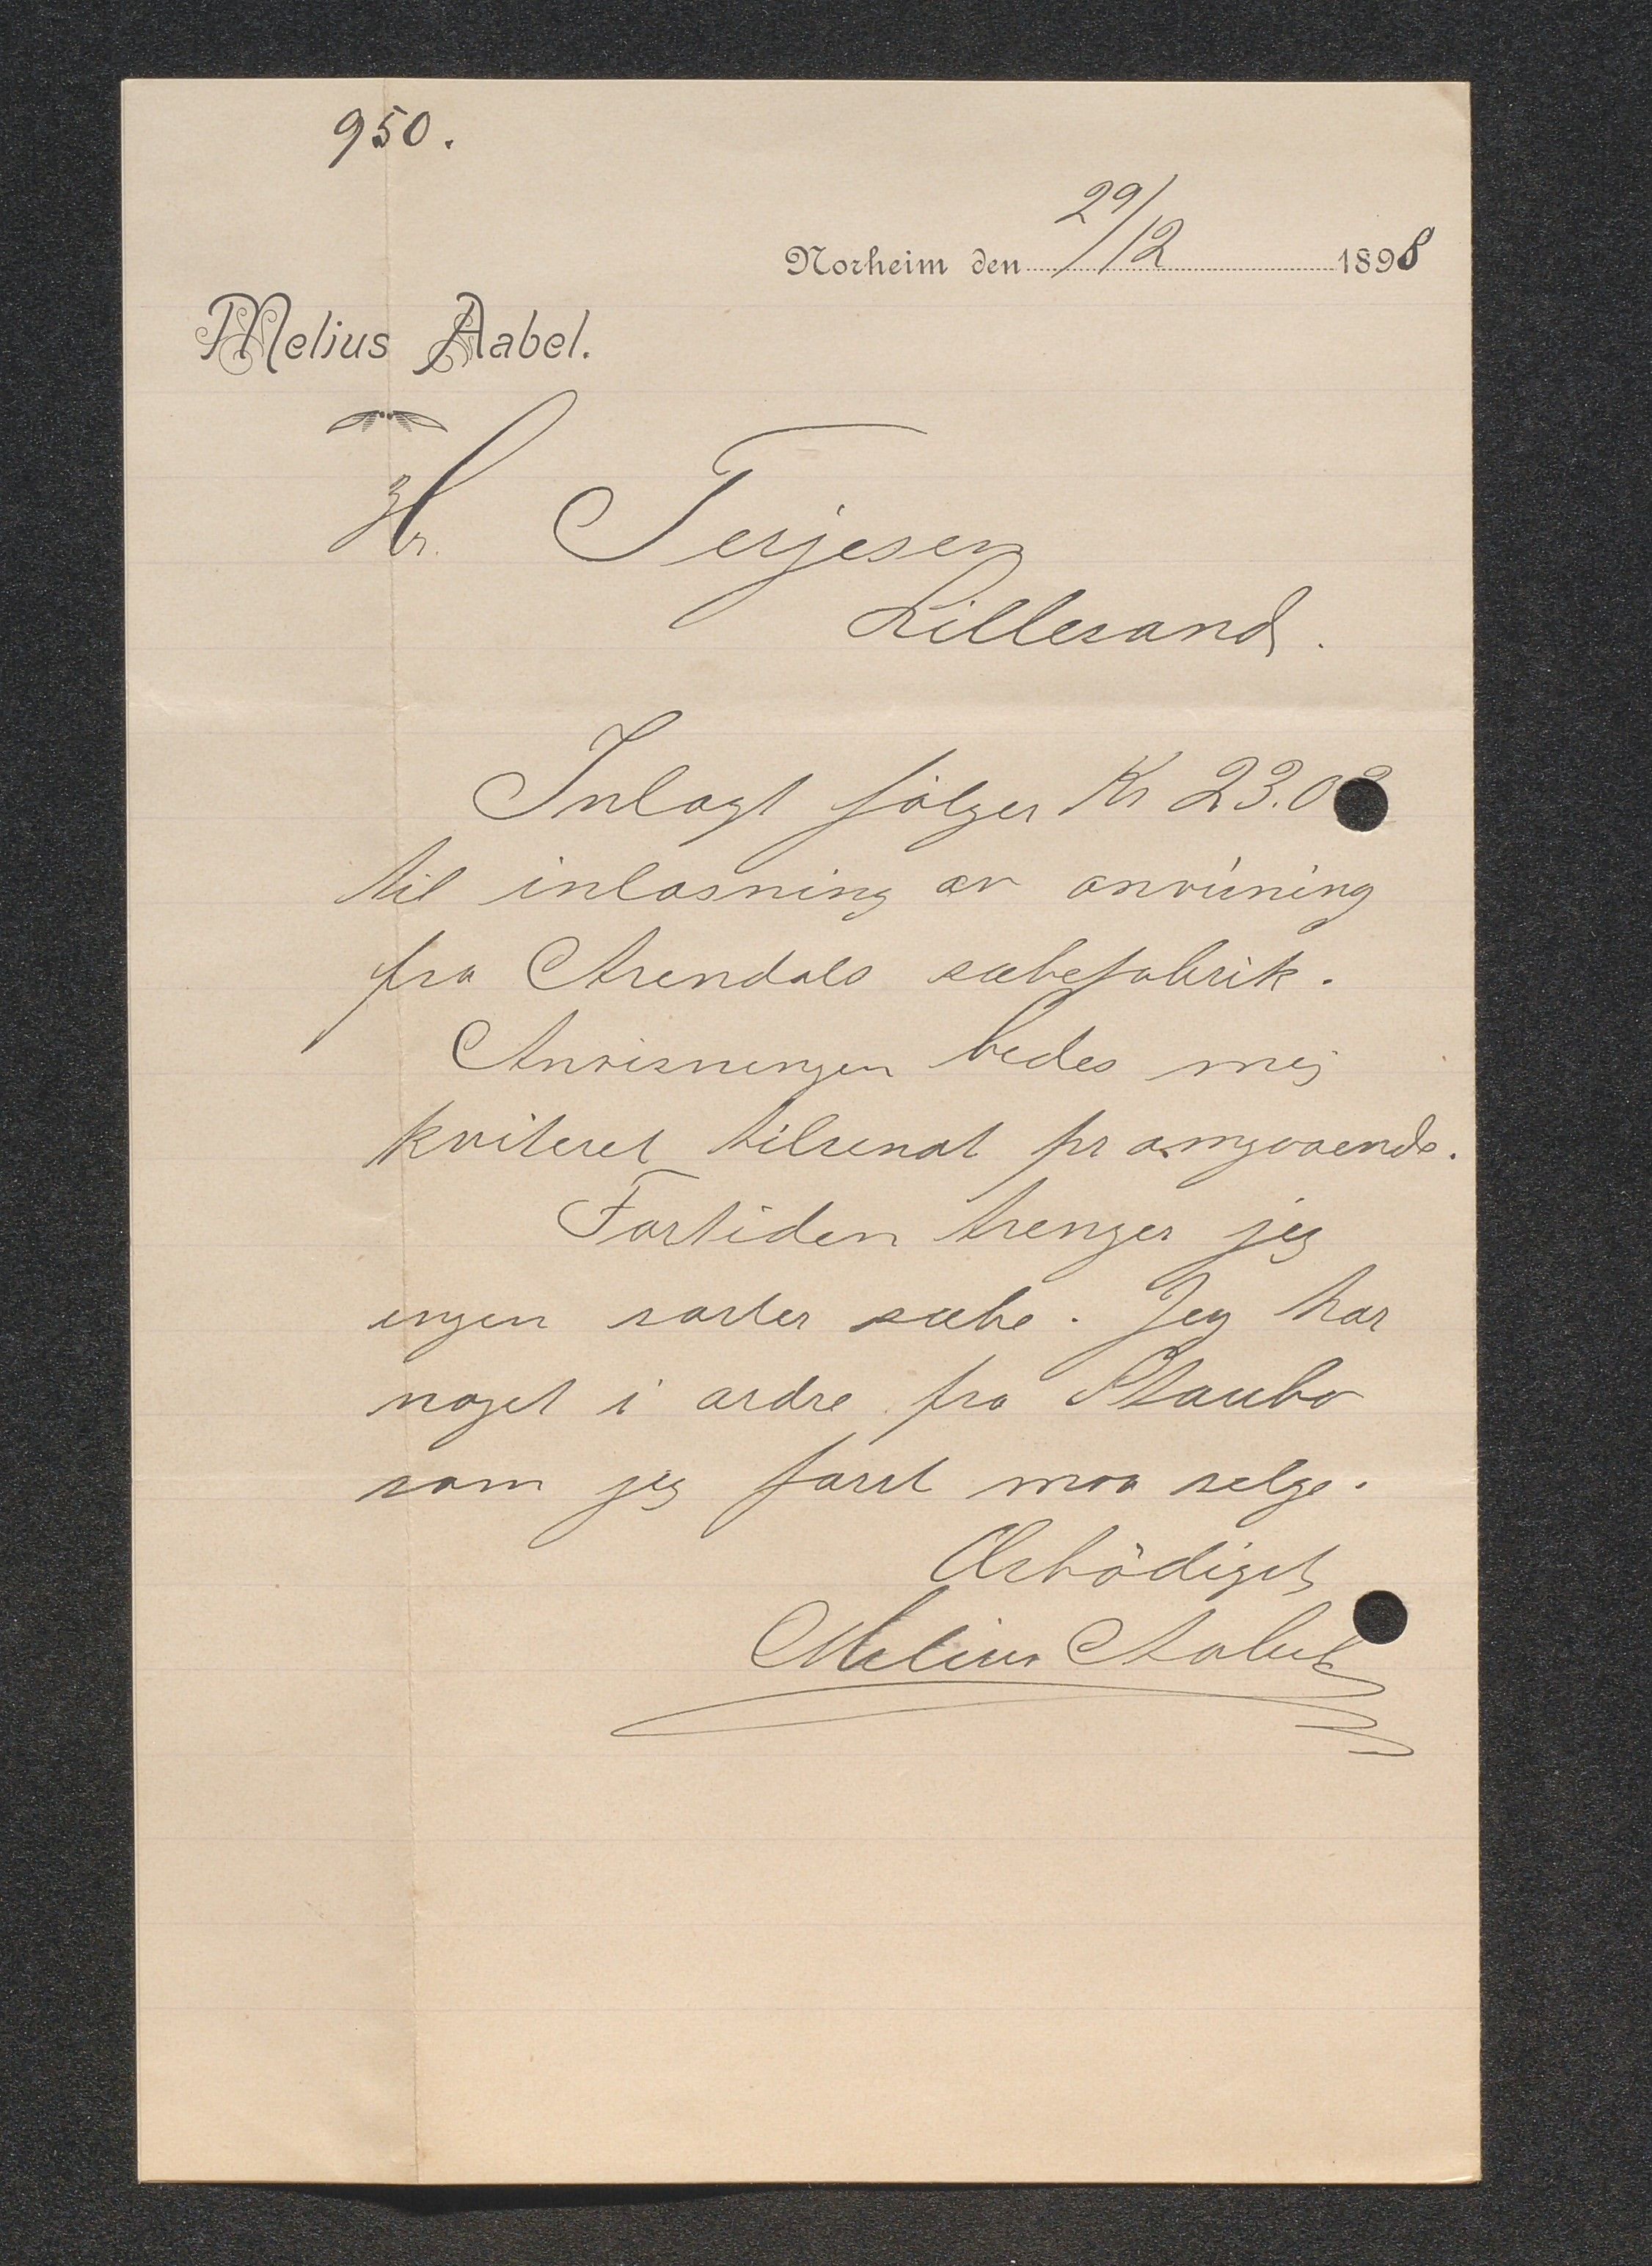 950.
Norheim den 29/12 1898
Melius Aabel.
Hr. Terjesen
Lillesand.
Inlagt følger Kr 23.0
til inløsning av anvisning
fra Arendals sæbefabrik.
Anvisningen bedes mig
kviteret tilsendt pr omgaaende.
Fortiden trenger jeg
ingen sorter sæbe. Jeg har
noget i ordre fra Staubo
som jeg først maa selge.
Ærbödigst
Melius Aabel